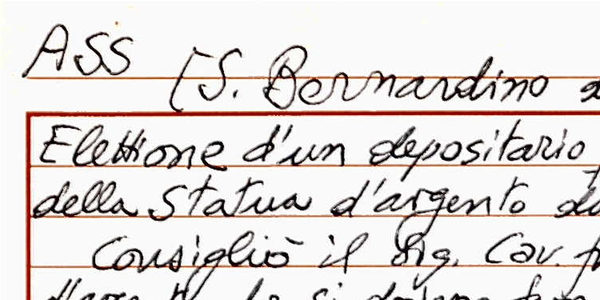 ASS [S. Bernardino
Elettione d'un depositario
della Statua d'argento
Consigliò il Sig. Cav.
si